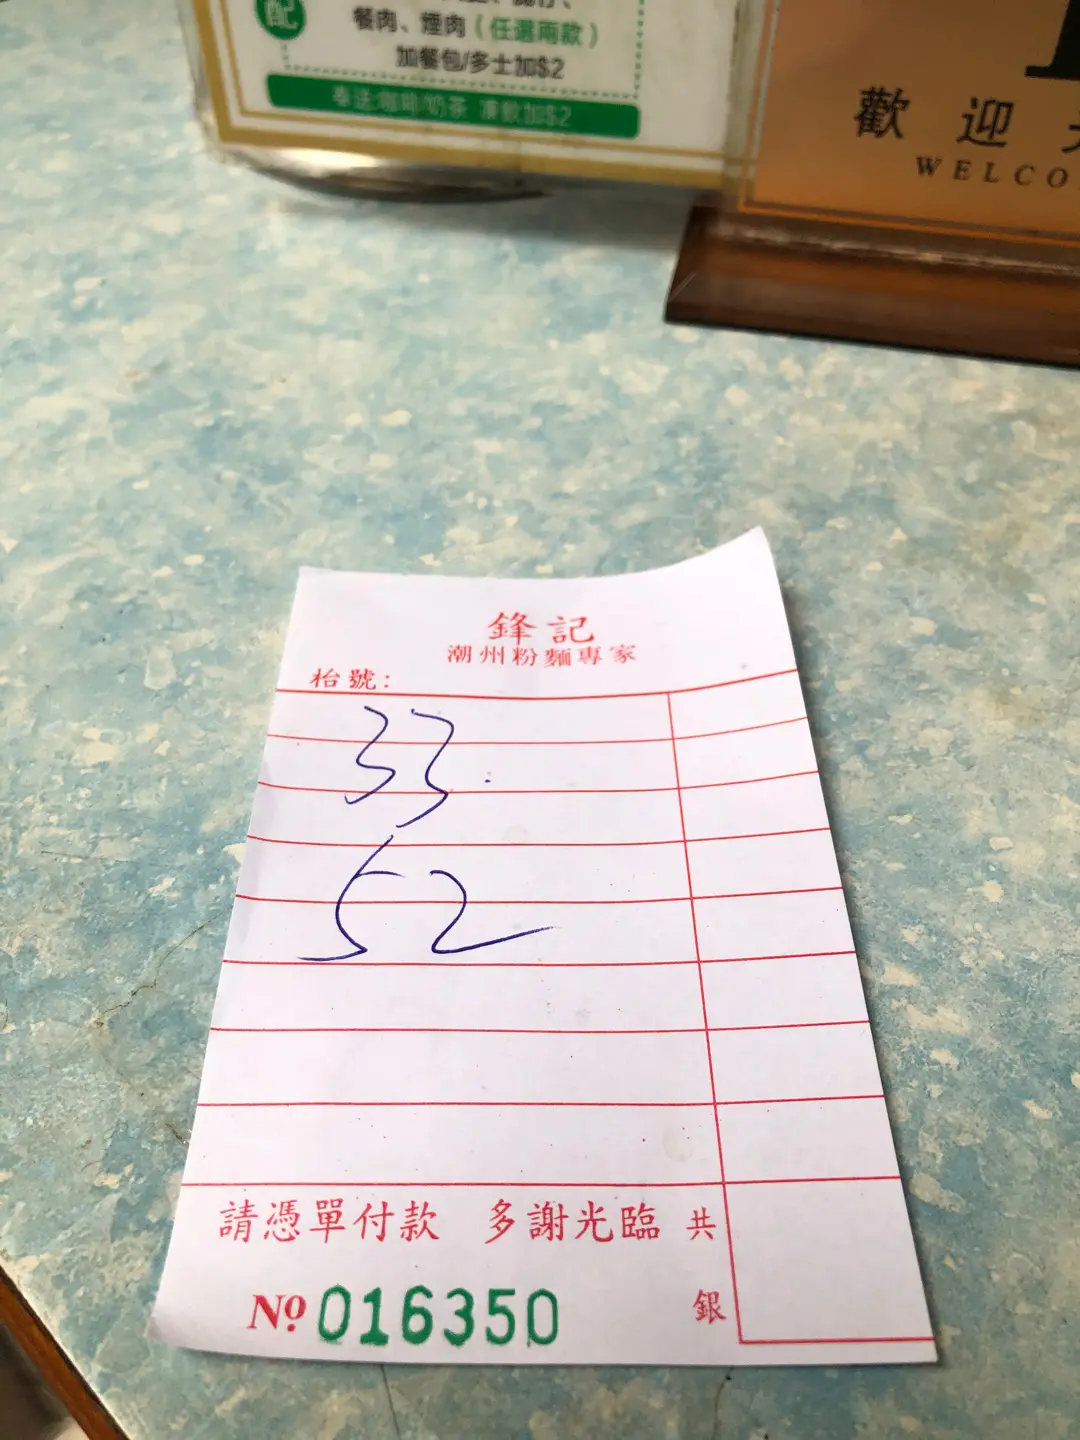 配
餐肉、煙肉（任選兩款）
加餐包/多士加$2
奉送:咖啡/奶茶 凍飲加$2
歡迎
WELCO
鋒記
潮州粉麵專家
枱號:
33
52
請憑單付款 多謝光臨 共
銀
Nº 016350